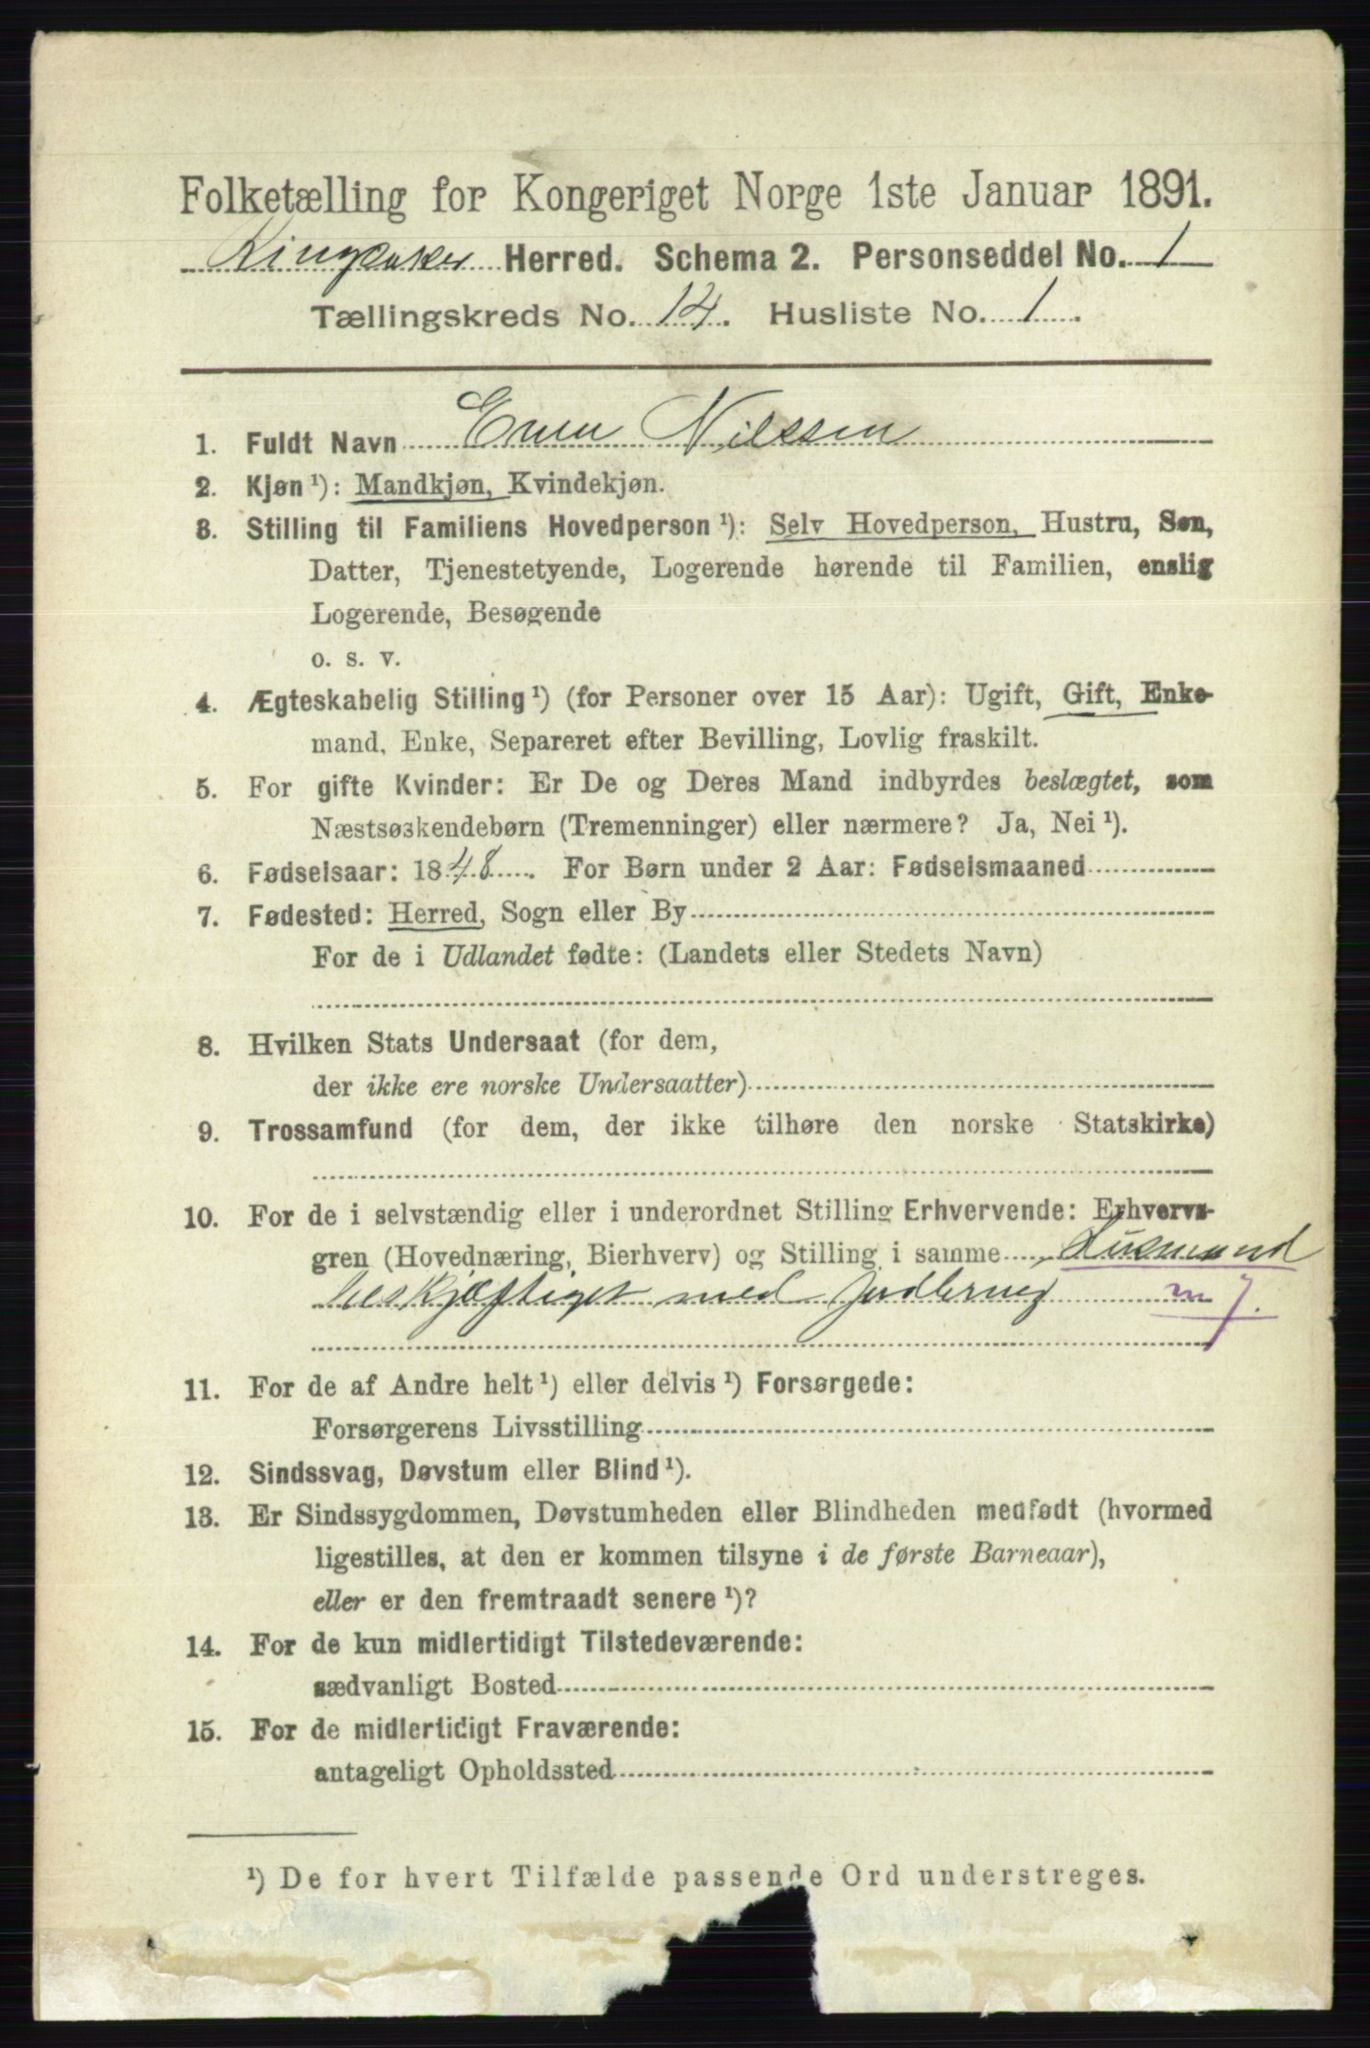 Folketælling for Kongeriget Norge 1ste Januar 1891.
Ringsaker Herred. Schema 2. Personseddel No. 1
Tællingskreds No. 14. Husliste No. 1.
1. Fuldt Navn Even Nilssen
2. Kjøn ¹): Mandkjøn, Kvindekjøn.
3. Stilling til Familiens Hovedperson ¹): Selv Hovedperson, Hustru, Søn,
Datter, Tjenestetyende, Logerende hørende til Familien, enslig
Logerende, Besøgende
o. s. v.
4. Ægteskabelig Stilling ¹) (for Personer over 15 Aar): Ugift, Gift, Enke-
mand, Enke, Separeret efter Bevilling, Lovlig fraskilt.
5. For gifte Kvinder: Er De og Deres Mand indbyrdes beslægtet, som
Næstsøskendebørn (Tremenninger) eller nærmere? Ja, Nei ¹).
6. Fødselsaar: 1848. For Børn under 2 Aar: Fødselsmaaned
7. Fødested: Herred, Sogn eller By
For de i Udlandet fødte: (Landets eller Stedets Navn)
8. Hvilken Stats Undersaat (for dem,
der ikke ere norske Undersaatter)
9. Trossamfund (for dem, der ikke tilhøre den norske Statskirke)
10. For de i selvstændig eller i underordnet Stilling Erhvervende: Erhvervs-
gren (Hovednæring, Bierhverv) og Stilling i samme Husmand
beskjæftiget med Jordbrug m J.
11. For de af Andre helt ¹) eller delvis ¹) Forsørgede:
Forsørgerens Livsstilling
12. Sindssvag, Døvstum eller Blind ¹).
13. Er Sindssygdommen, Døvstumheden eller Blindheden medfødt (hvormed
ligestilles, at den er kommen tilsyne i de første Barneaar),
eller er den fremtraadt senere ¹)?
14. For de kun midlertidigt Tilstedeværende:
sædvanligt Bosted
15. For de midlertidigt Fraværende:
antageligt Opholdssted
¹) De for hvert Tilfælde passende Ord understreges.